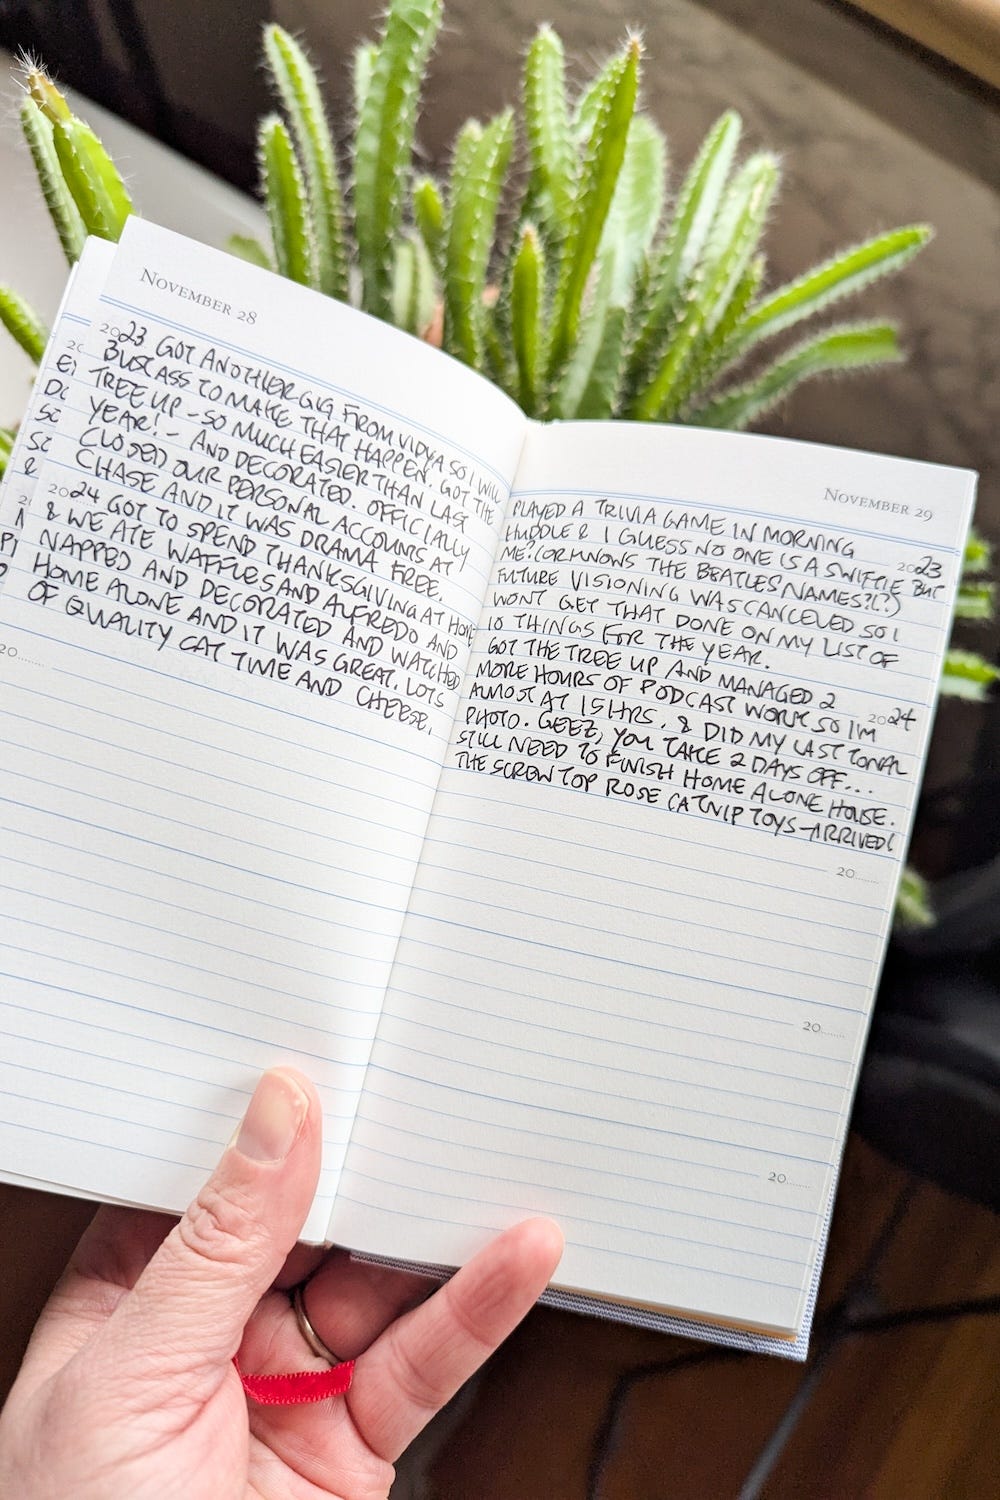 NOVEMBER 28
2023 GOT ANOTHER GIG FROM VIDYA SO I WILL
BUST ASS TO MAKE THAT HAPPEN. GOT THE
TREE UP - SO MUCH EASIER THAN LAST
YEAR! - AND DECORATED. OFFICIALLY
CLOSED OUR PERSONAL ACCOUNTS AT
CHASE AND IT WAS DRAMA FREE.
2024 GOT TO SPEND THANKSGIVING AT HOME
& WE ATE WAFFLES AND ALFREDO AND
NAPPED AND DECORATED AND WATCHED
HOME ALONE AND IT WAS GREAT. LOTS
OF QUALITY CAT TIME AND CHEESE.
20
NOVEMBER 29
PLAYED A TRIVIA GAME IN MORNING 2023
HUDDLE & I GUESS NO ONE IS A SWIFTIE BUT
ME? (OR KNOWS THE BEATLES NAMES?!?)
FUTURE VISIONING WAS CANCELED SO I
WONT GET THAT DONE ON MY LIST OF
10 THINGS FOR THE YEAR.
GOT THE TREE UP AND MANAGED 2 2024
MORE HOURS OF PODCAST WORK SO IM
ALMOST AT 15HRS. & DID MY LAST TONAL
PHOTO. GEEZ, YOU TAKE 2 DAYS OFF...
STILL NEED TO FINISH HOME ALONE HOUSE.
THE SCREW TOP ROSE CATNIP TOYS ARRIVED!
20
20
20